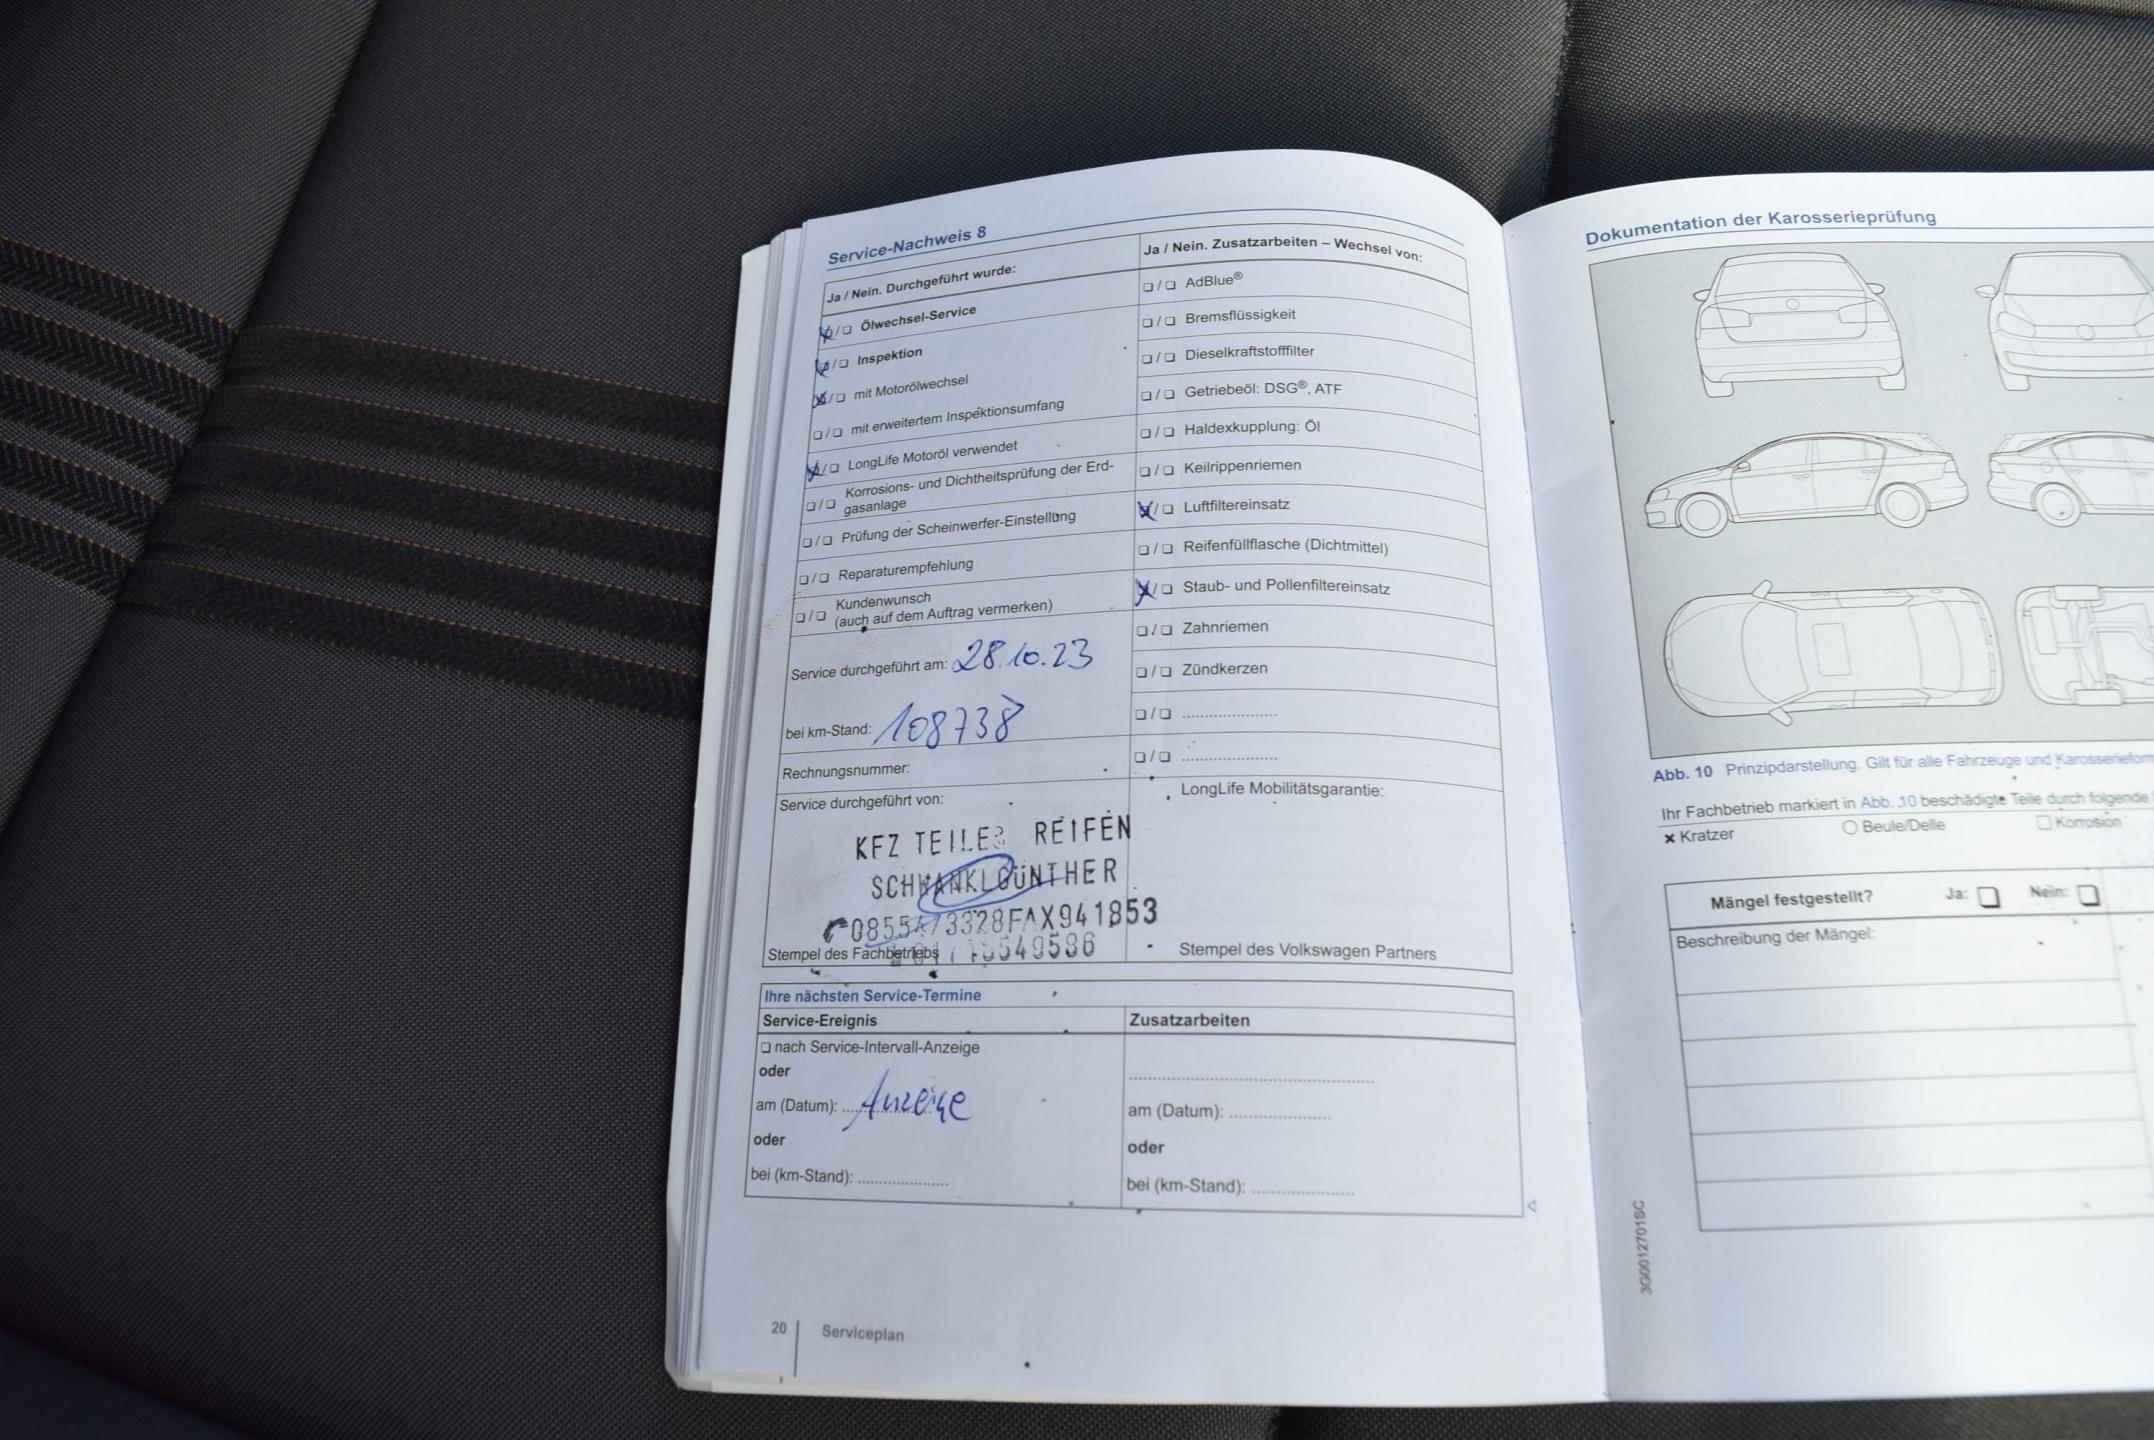 Service-Nachweis 8
Ja / Nein. Durchgeführt wurde:
❏/❏ Ölwechsel-Service
❏/❏ Inspektion
❏/❏ mit Motorölwechsel
❏/❏ mit erweitertem Inspektionsumfang
❏/❏ LongLife Motoröl verwendet
❏/❏ Korrosions- und Dichtheitsprüfung der Erd-
gasanlage
❏/❏ Prüfung der Scheinwerfer-Einstellung
❏/❏ Reparaturempfehlung
❏/❏ Kundenwunsch
(auch auf dem Auftrag vermerken)
Service durchgeführt am: 28.10.23
bei km-Stand: 108738
Rechnungsnummer:
Service durchgeführt von:
KFZ TEILE REIFEN
SCHWANKL GÜNTHER
FAX941853
Stempel des Fachbetriebs
Ja / Nein. Zusatzarbeiten – Wechsel von:
❏/❏ AdBlue®
❏/❏ Bremsflüssigkeit
❏/❏ Dieselkraftstofffilter
❏/❏ Getriebeöl: DSG®, ATF
❏/❏ Haldexkupplung: Öl
❏/❏ Keilrippenriemen
❏/❏ Luftfiltereinsatz
❏/❏ Reifenfüllflasche (Dichtmittel)
❏/❏ Staub- und Pollenfiltereinsatz
❏/❏ Zahnriemen
❏/❏ Zündkerzen
❏/❏ .....................
❏/❏ .....................
LongLife Mobilitätsgarantie:
Stempel des Volkswagen Partners
Ihre nächsten Service-Termine
Service-Ereignis
❏ nach Service-Intervall-Anzeige
oder
am (Datum): Anzeige
oder
bei (km-Stand): ....................
Zusatzarbeiten
am (Datum): ......................
oder
bei (km-Stand): ......................
20
Serviceplan
Dokumentation der Karosserieprüfung
Abb. 10 Prinzipdarstellung. Gilt für alle Fahrzeuge und Karosserieform
Ihr Fachbetrieb markiert in Abb. 10 beschädigte Teile durch folgende
× Kratzer
○ Beule/Delle
☐ Korrosion
Mängel festgestellt? Ja: ❏ Nein: ❏
Beschreibung der Mängel:
3G0012701SC